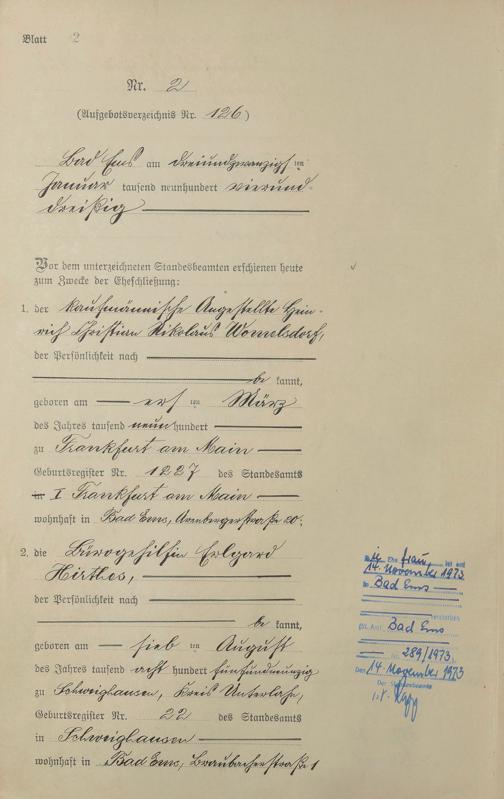 Blatt 2
Nr. 2
(Aufgebotsverzeichnis Nr. 126)
Bad Ems am dreiundzwanzigsten
Januar tausend neunhundert vierund-
dreißig
Vor dem unterzeichneten Standesbeamten erschienen heute
zum Zwecke der Eheschließung:
1. der kaufmännische Angestellte Hein-
rich Christian Nikolaus Womelsdorf,
der Persönlichkeit nach
be kannt,
geboren am ersten März
des Jahres tausend neun hundert
zu Frankfurt am Main
Geburtsregister Nr. 1227 des Standesamts
in I Frankfurt am Main
wohnhaft in Bad Ems, Arenbergerstraße 20.
2. die Bürogehilfin Erlgard
der Persönlichkeit nach
be kannt,
geboren am siebten August
des Jahres tausend acht hundert fünfundneunzig
zu Schweighausen, Kreis Unterlahn,
Geburtsregister Nr. 22 des Standesamts
in Schweighausen
wohnhaft in Bad Ems, Braubacherstraße 1
Die Ehefrau ist am
14. November 1973
in Bad Ems
verstorben
St. Amt Bad Ems
Nr. 289/1973
Den 14. November 1973
Der Standesbeamte